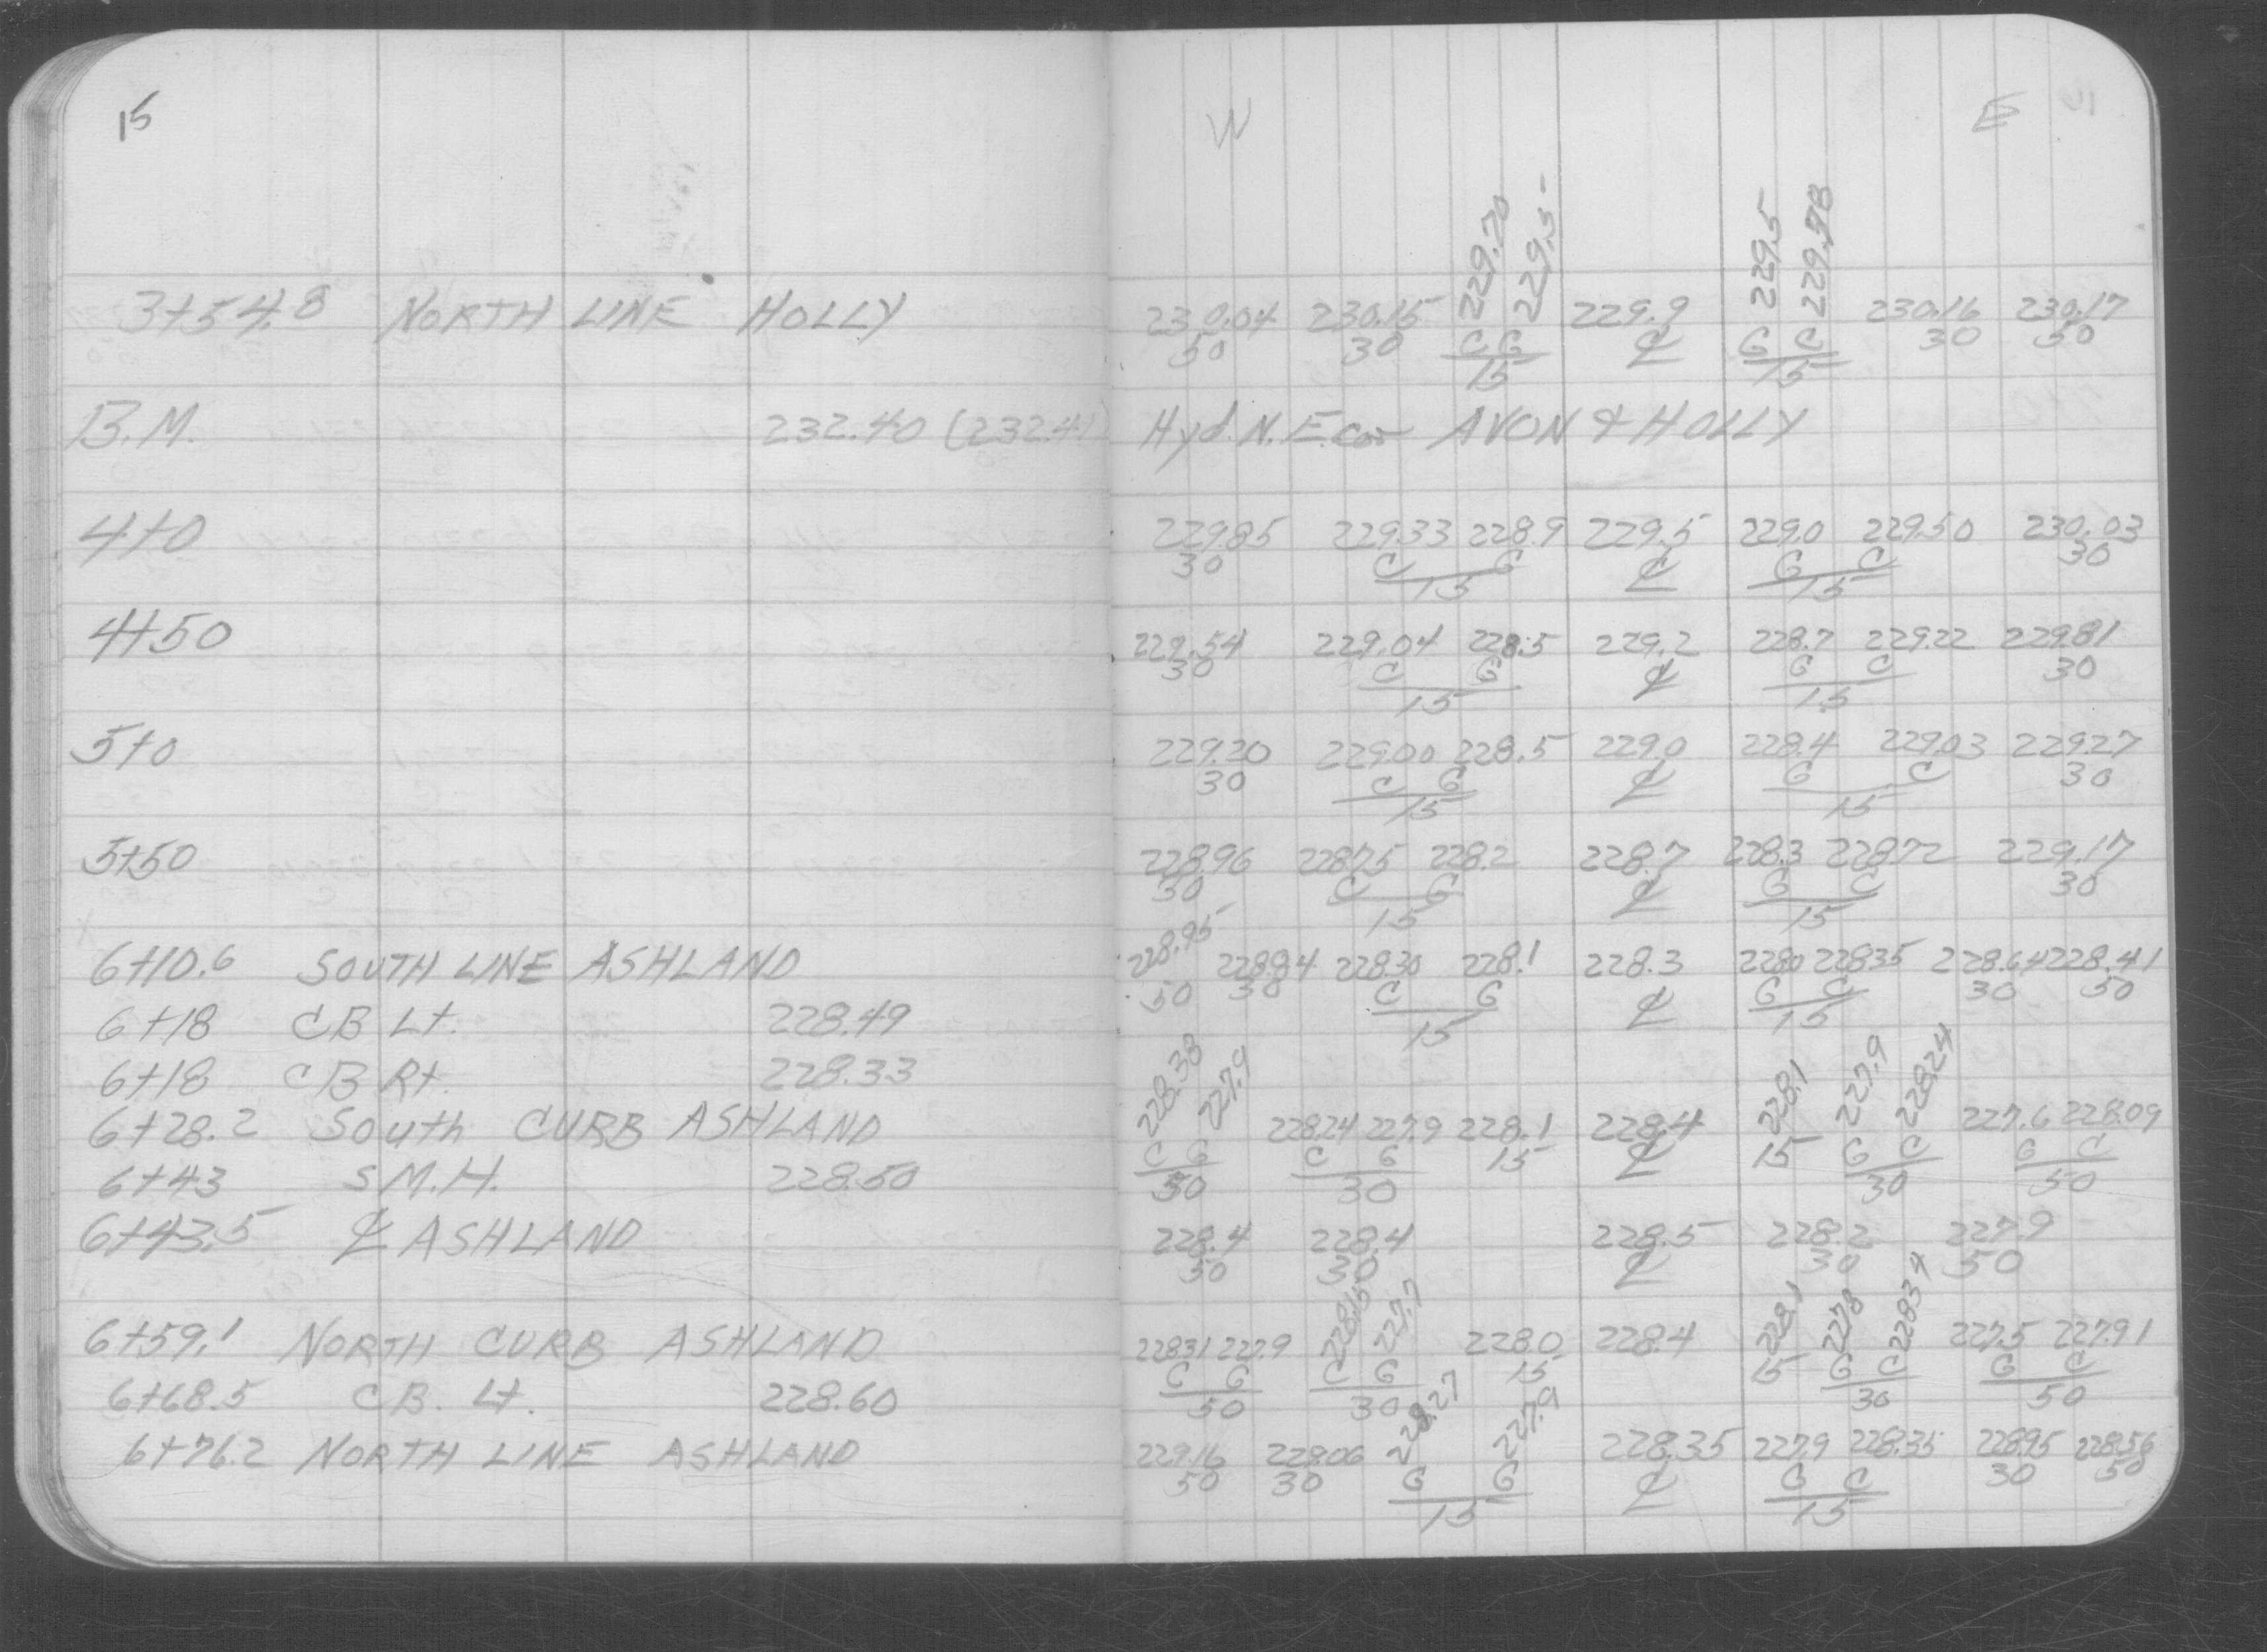 15 W E
229.70 229.5 229.5 229.78
3+54.8 NORTH LINE HOLLY 230.04 230.15 229.9 230.16 230.17
50 30 C G ℄ G C 30 50
15 15
B.M. 232.40 (232.41) Hyd. N.E. Cor AVON & HOLLY
4+0 229.85 229.33 228.9 229.5 229.0 229.50 230.03
30 C G ℄ G C 30
15 15
4+50 229.54 229.04 228.5 229.2 228.7 229.22 229.81
30 C G ℄ G C 30
15 15
5+0 229.20 229.00 228.5 229.0 228.4 229.03 229.27
30 C G ℄ G C 30
15 15
5+50 228.96 228.75 228.2 228.7 228.3 228.72 229.17
30 C G ℄ G C 30
15 15
228.95
6+10.6 SOUTH LINE ASHLAND 228.84 228.30 228.1 228.3 228.0 228.35 228.64 228.41
50 30 C G ℄ G C 30 50
6+18 CB Lt. 228.49 15 15
6+18 CB Rt. 228.33
228.38 227.9 228.1 227.9 228.24
6+28.2 South CURB ASHLAND 228.24 227.9 228.1 228.4 227.6 228.09
C G C G 15 ℄ 15 G C G C
6+43 S M.H. 228.50 50 30 30 50
6+43.5 ℄ ASHLAND 228.4 228.4 228.5 228.2 227.9
50 30 ℄ 30 50
228.15 227.7 228.1 227.8 228.34
6+59.1 NORTH CURB ASHLAND 228.31 227.9 228.0 228.4 227.5 227.91
C G C G 15 15 G C G C
6+68.5 CB. Lt. 228.60 50 30 30 50
228.27 227.9
6+76.2 NORTH LINE ASHLAND 229.16 229.06 228.35 227.9 228.35 228.95 228.56
50 30 G G ℄ G C 30 50
15 15